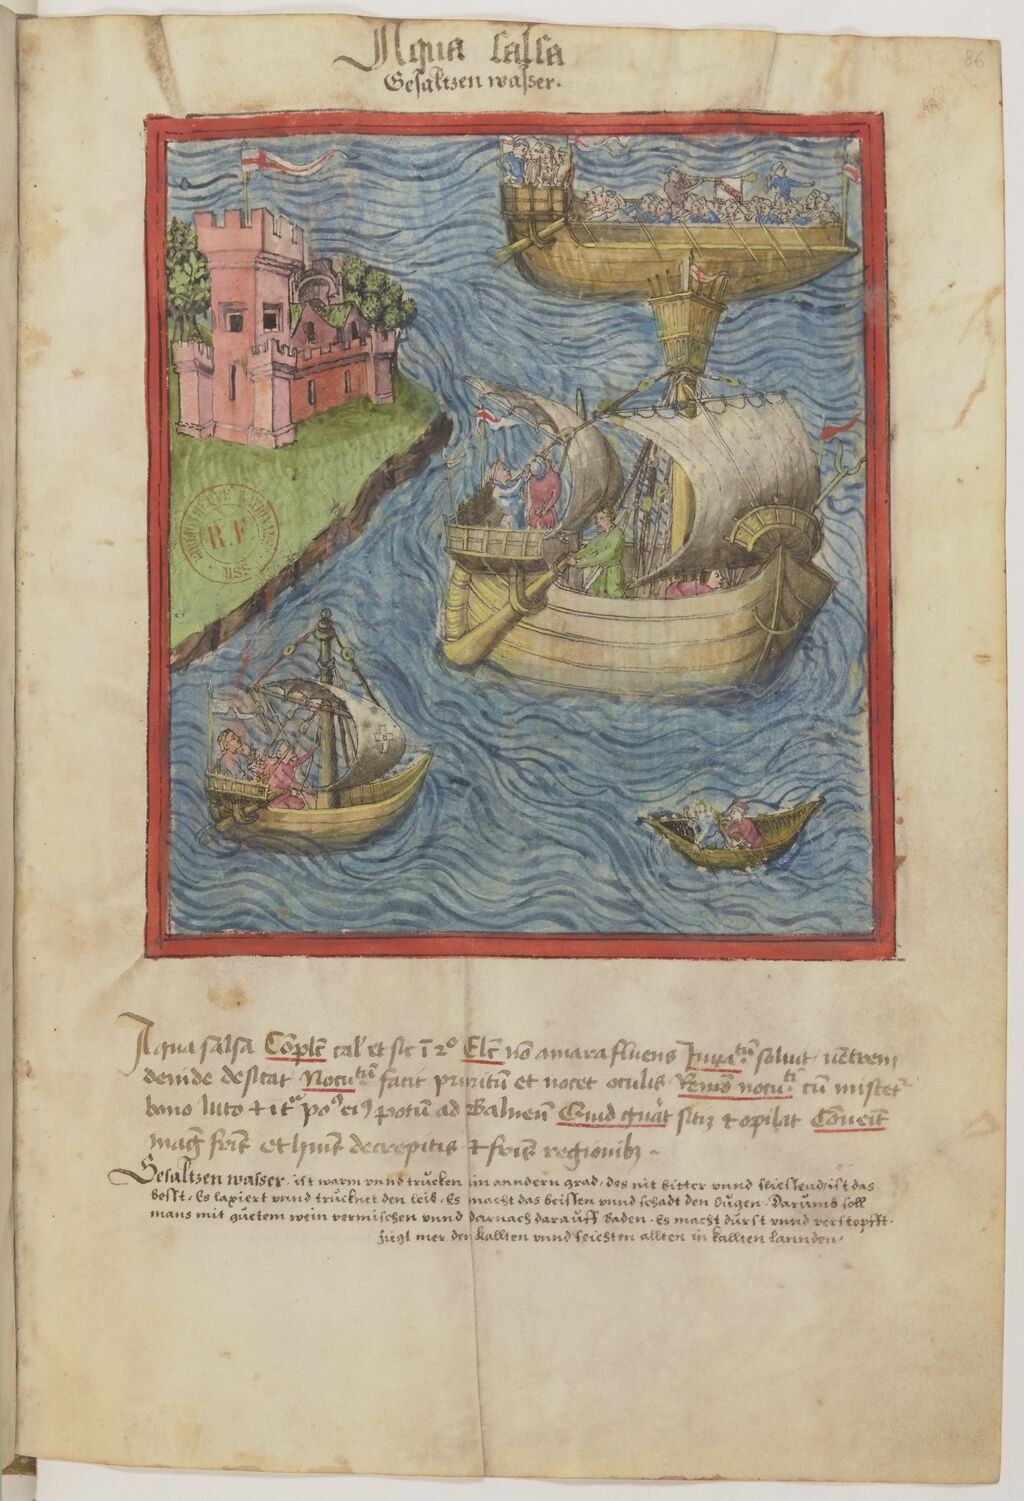 Aqua salsa
Gesaltzen wasser.
86
BIBLIOTHEQUE NATIONALE
R.F.
MSS
Aqua salsa Cōplē cal' et sic ī 2º Elc̄ nō amara fluens Juua.tū soluit uētrem
deinde desicat Nocu.tū facit pruritū et nocet oculis Remō nocu.ti cū mistet'
bono luto & ītº po9 ei9 potū ad Balneū Quid gnāt sitī & opilat Cōueīt
maḡ frīs et huīs decrepitis & frīs regionibꝫ.
Gesaltzen wasser. ist warm vnnd trucken im anndern grad. des nit bitter vnnd fliessend ist das
besst. Es laxiert vnnd trucknet den leib. Es macht das beissen vnnd schadt den Ougen. Darumb soll
mans mit guetem wein vermischen vnnd darnach darauff baden. Es macht durst vnnd verstopfft.
zugt mer den kallten vnnd feichten allten in kallten lannden.